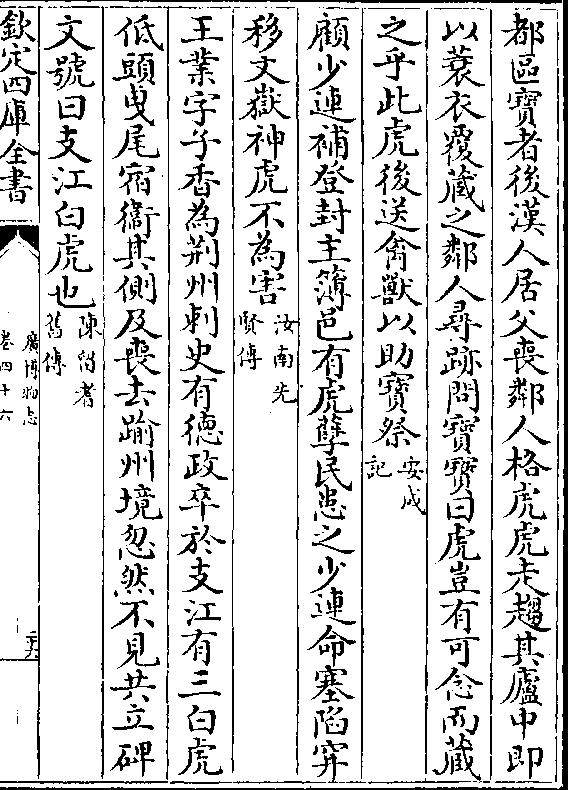 都區寶者後漢人居父喪鄰人格虎虎走趨其廬中即
以蓑衣覆藏之鄰人尋跡問寶寶曰虎豈有可念而藏
之乎此虎後送禽獸以助寶祭安成
記
顧少連補登封主簿邑有虎孽民患之少連命塞陷穽
移文嶽神虎不為害汝南先
賢傳
王業字子香為荆州刺史有徳政卒於支江有三白虎
低頭曵尾宿衞其側及喪去踰州境忽然不見共立碑
文號曰支江白虎也陳留耆
舊傳
欽定四庫全書
廣博物志
卷四十六